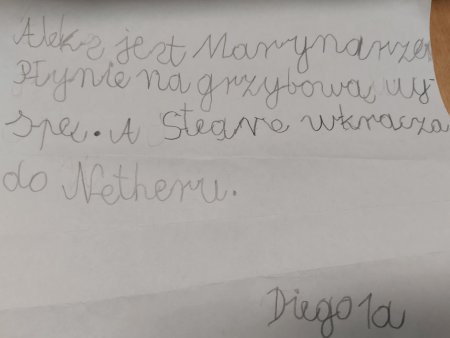 Aleks jest Marynarzem
Płynie na grzybową wy-
spę. A Steave wkracza
do Netheru.
Diego 1a